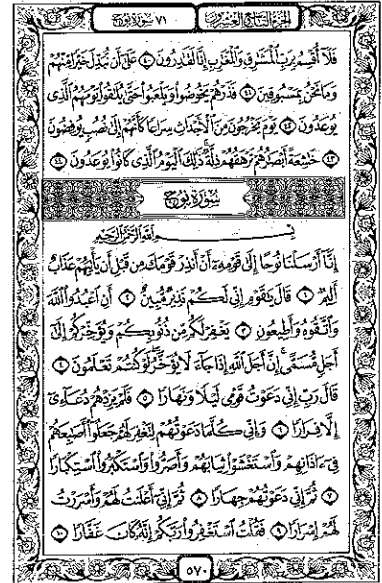 الجزء التاسع والعشرون
٧١ سورة نوح
فَلَآ أُقْسِمُ بِرَبِّ ٱلْمَشَٰرِقِ وَٱلْمَغَٰرِبِ إِنَّا لَقَٰدِرُونَ ٤٠ عَلَىٰٓ أَن نُّبَدِّلَ خَيْرًا مِّنْهُمْ
وَمَا نَحْنُ بِمَسْبُوقِينَ ٤١ فَذَرْهُمْ يَخُوضُوا۟ وَيَلْعَبُوا۟ حَتَّىٰ يُلَٰقُوا۟ يَوْمَهُمُ ٱلَّذِى
يُوعَدُونَ ٤٢ يَوْمَ يَخْرُجُونَ مِنَ ٱلْأَجْدَاثِ سِرَاعًا كَأَنَّهُمْ إِلَىٰ نُصُبٍ يُوفِضُونَ
٤٣ خَٰشِعَةً أَبْصَٰرُهُمْ تَرْهَقُهُمْ ذِلَّةٌ ۚ ذَٰلِكَ ٱلْيَوْمُ ٱلَّذِى كَانُوا۟ يُوعَدُونَ ٤٤
سُورَةُ نُوحٍ
بِسْمِ ٱللَّهِ ٱلرَّحْمَٰنِ ٱلرَّحِيمِ
إِنَّآ أَرْسَلْنَا نُوحًا إِلَىٰ قَوْمِهِۦٓ أَنْ أَنذِرْ قَوْمَكَ مِن قَبْلِ أَن يَأْتِيَهُمْ عَذَابٌ
أَلِيمٌ ١ قَالَ يَٰقَوْمِ إِنِّى لَكُمْ نَذِيرٌ مُّبِينٌ ٢ أَنِ ٱعْبُدُوا۟ ٱللَّهَ
وَٱتَّقُوهُ وَأَطِيعُونِ ٣ يَغْفِرْ لَكُم مِّن ذُنُوبِكُمْ وَيُؤَخِّرْكُمْ إِلَىٰٓ
أَجَلٍ مُّسَمًّى ۚ إِنَّ أَجَلَ ٱللَّهِ إِذَا جَآءَ لَا يُؤَخَّرُ ۖ لَوْ كُنتُمْ تَعْلَمُونَ ٤
قَالَ رَبِّ إِنِّى دَعَوْتُ قَوْمِى لَيْلًا وَنَهَارًا ٥ فَلَمْ يَزِدْهُمْ دُعَآءِىٓ
إِلَّا فِرَارًا ٦ وَإِنِّى كُلَّمَا دَعَوْتُهُمْ لِتَغْفِرَ لَهُمْ جَعَلُوٓا۟ أَصَٰبِعَهُمْ
فِىٓ ءَاذَانِهِمْ وَٱسْتَغْشَوْا۟ ثِيَابَهُمْ وَأَصَرُّوا۟ وَٱسْتَكْبَرُوا۟ ٱسْتِكْبَارًا
٧ ثُمَّ إِنِّى دَعَوْتُهُمْ جِهَارًا ٨ ثُمَّ إِنِّىٓ أَعْلَنتُ لَهُمْ وَأَسْرَرْتُ
لَهُمْ إِسْرَارًا ٩ فَقُلْتُ ٱسْتَغْفِرُوا۟ رَبَّكُمْ إِنَّهُۥ كَانَ غَفَّارًا ١٠
٥٧٠